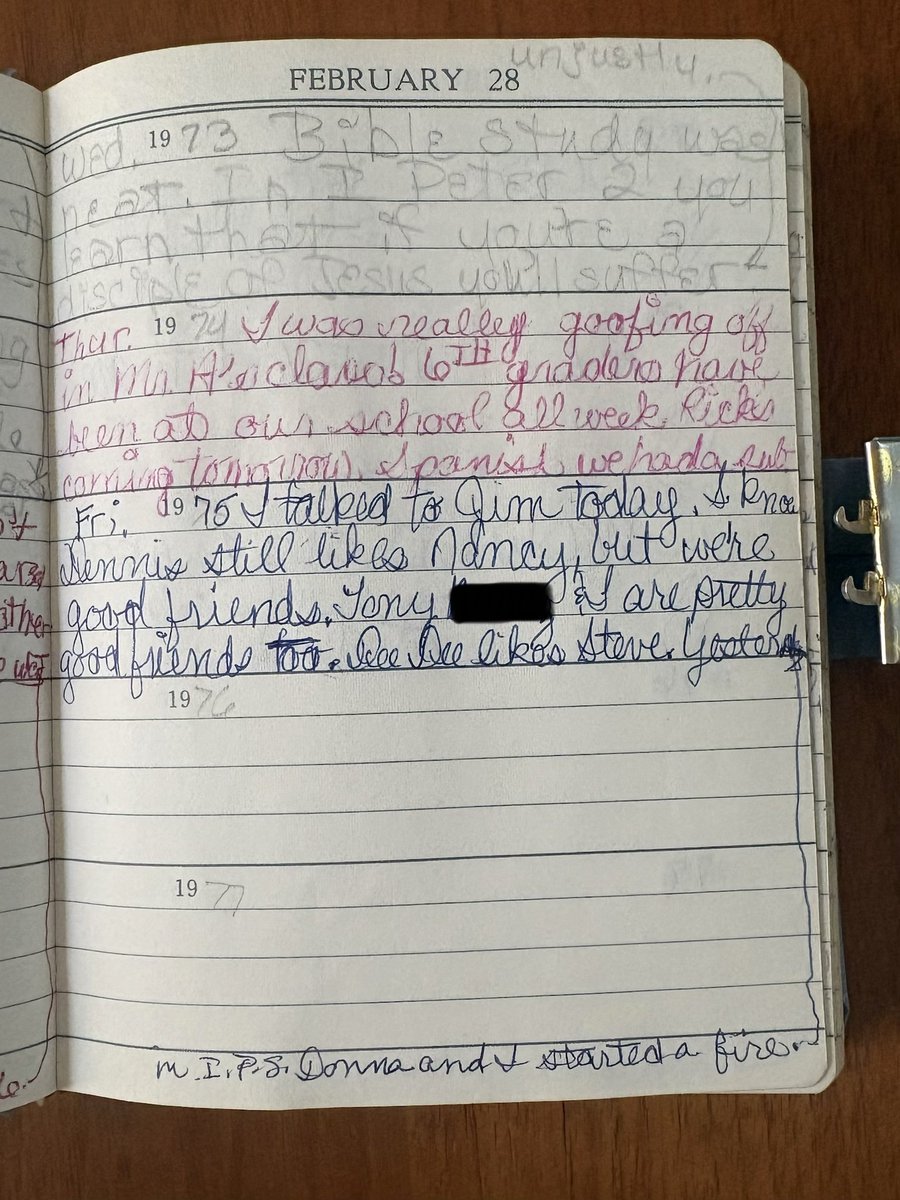 unjustly.
FEBRUARY 28
Wed. 1973 Bible study was
neat. In I Peter 2 you
learn that if you're a
disciple of Jesus you'll suffer
Thur. 1974 I was really goofing off
in Mr. A's class. 6TH graders have
been at our school all week. Ricks
coming tomorrow. Spanish, we had a sub
Fri. 1975 I talked to Jim today. I know
Dennis still likes Nancy, but we're
good friends. Tony & I are pretty
good friends too. Dee Dee likes Steve. Yesterday
1976
1977
in I.P.S. Donna and I started a fire.